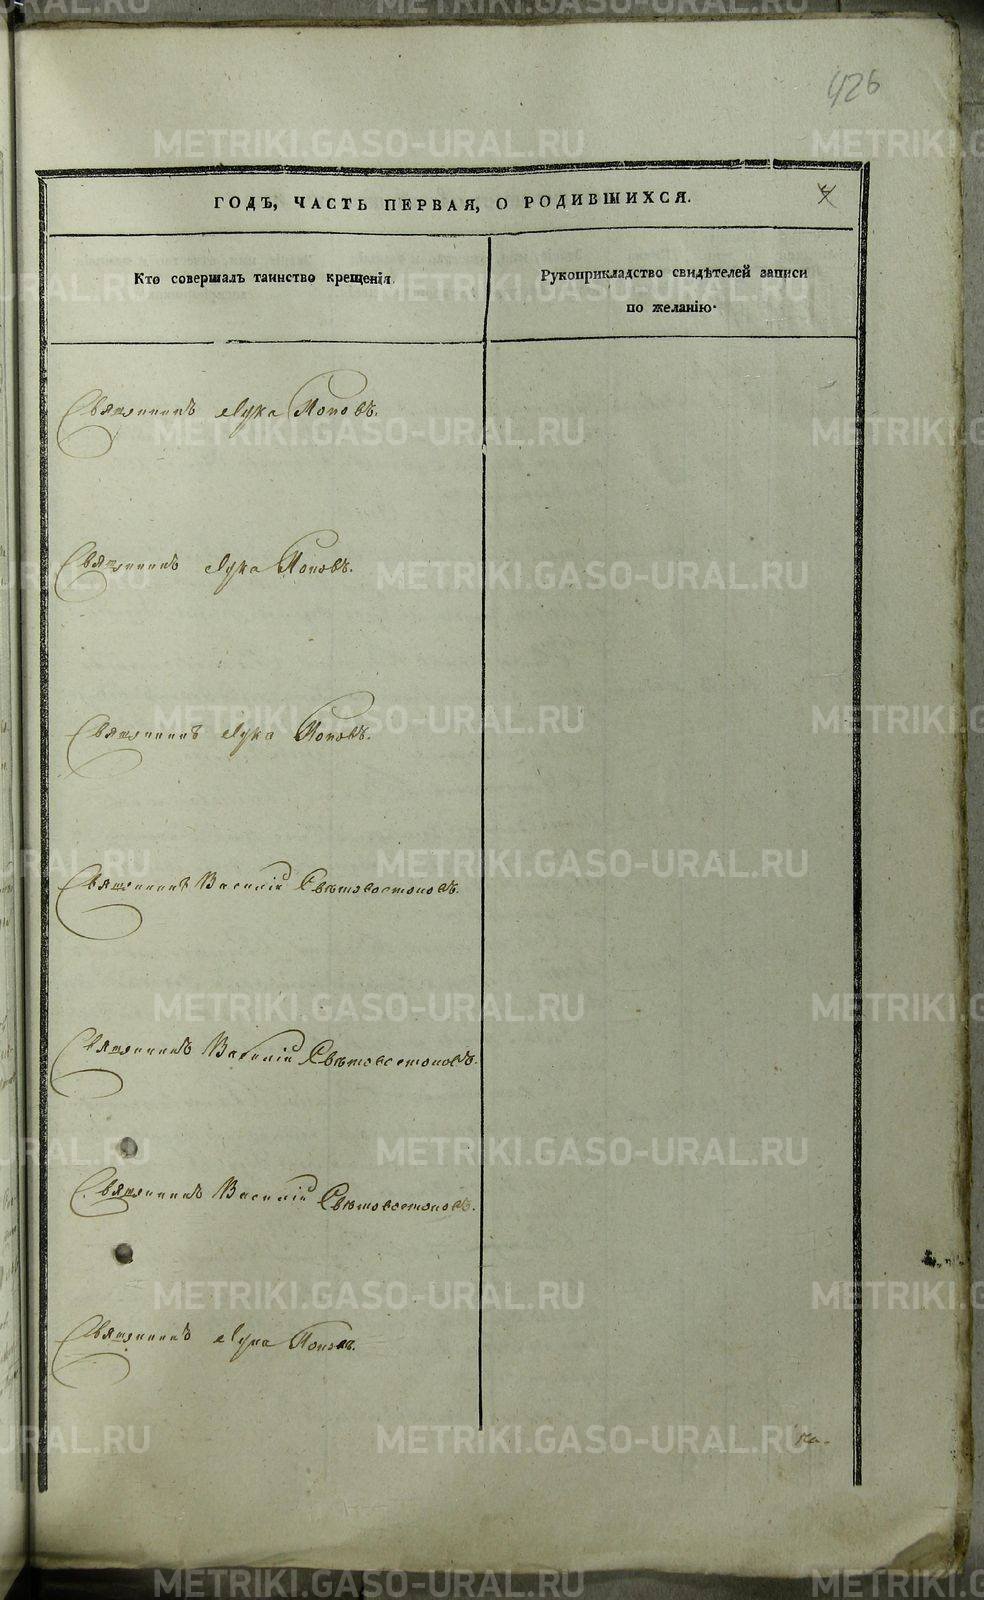 426
ГОДЪ, ЧАСТЬ ПЕРВАЯ, О РОДИВШИХСЯ.
Кто совершалъ таинство крещенія.
Рукоприкладство свидѣтелей записи
по желанію.
Священникъ Лука Поповъ.
Священникъ Лука Поповъ.
Священникъ Лука Поповъ.
Священникъ Василій Свѣтовостоковъ.
Священникъ Василій Свѣтовостоковъ.
Священникъ Василій Свѣтовостоковъ.
Священникъ Лука Поповъ.
METRIKI.GASO-URAL.RU